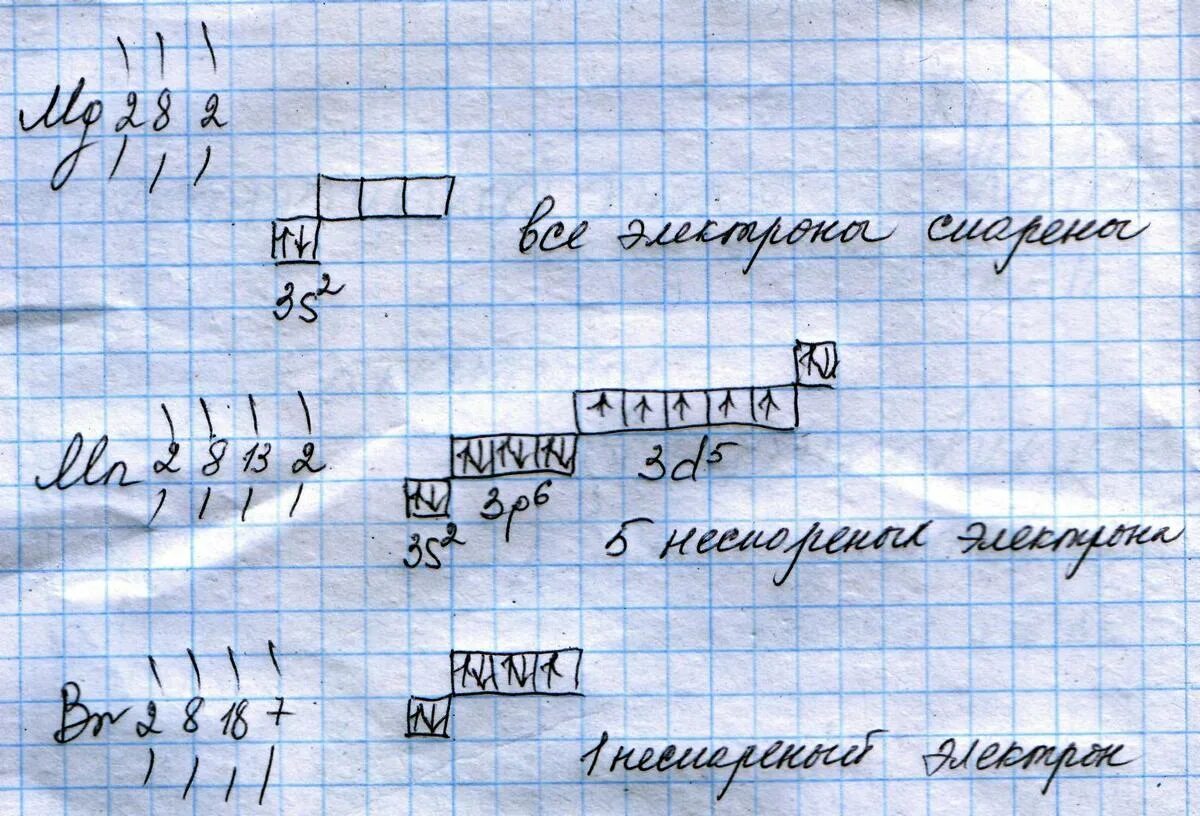 Mg 2 8 2
все электроны спарены
3s²
Mn 2 8 13 2
3d⁵
3p⁶
3s²
5 неспореных электрона
Br 2 8 18 7
1 неспареный электрон